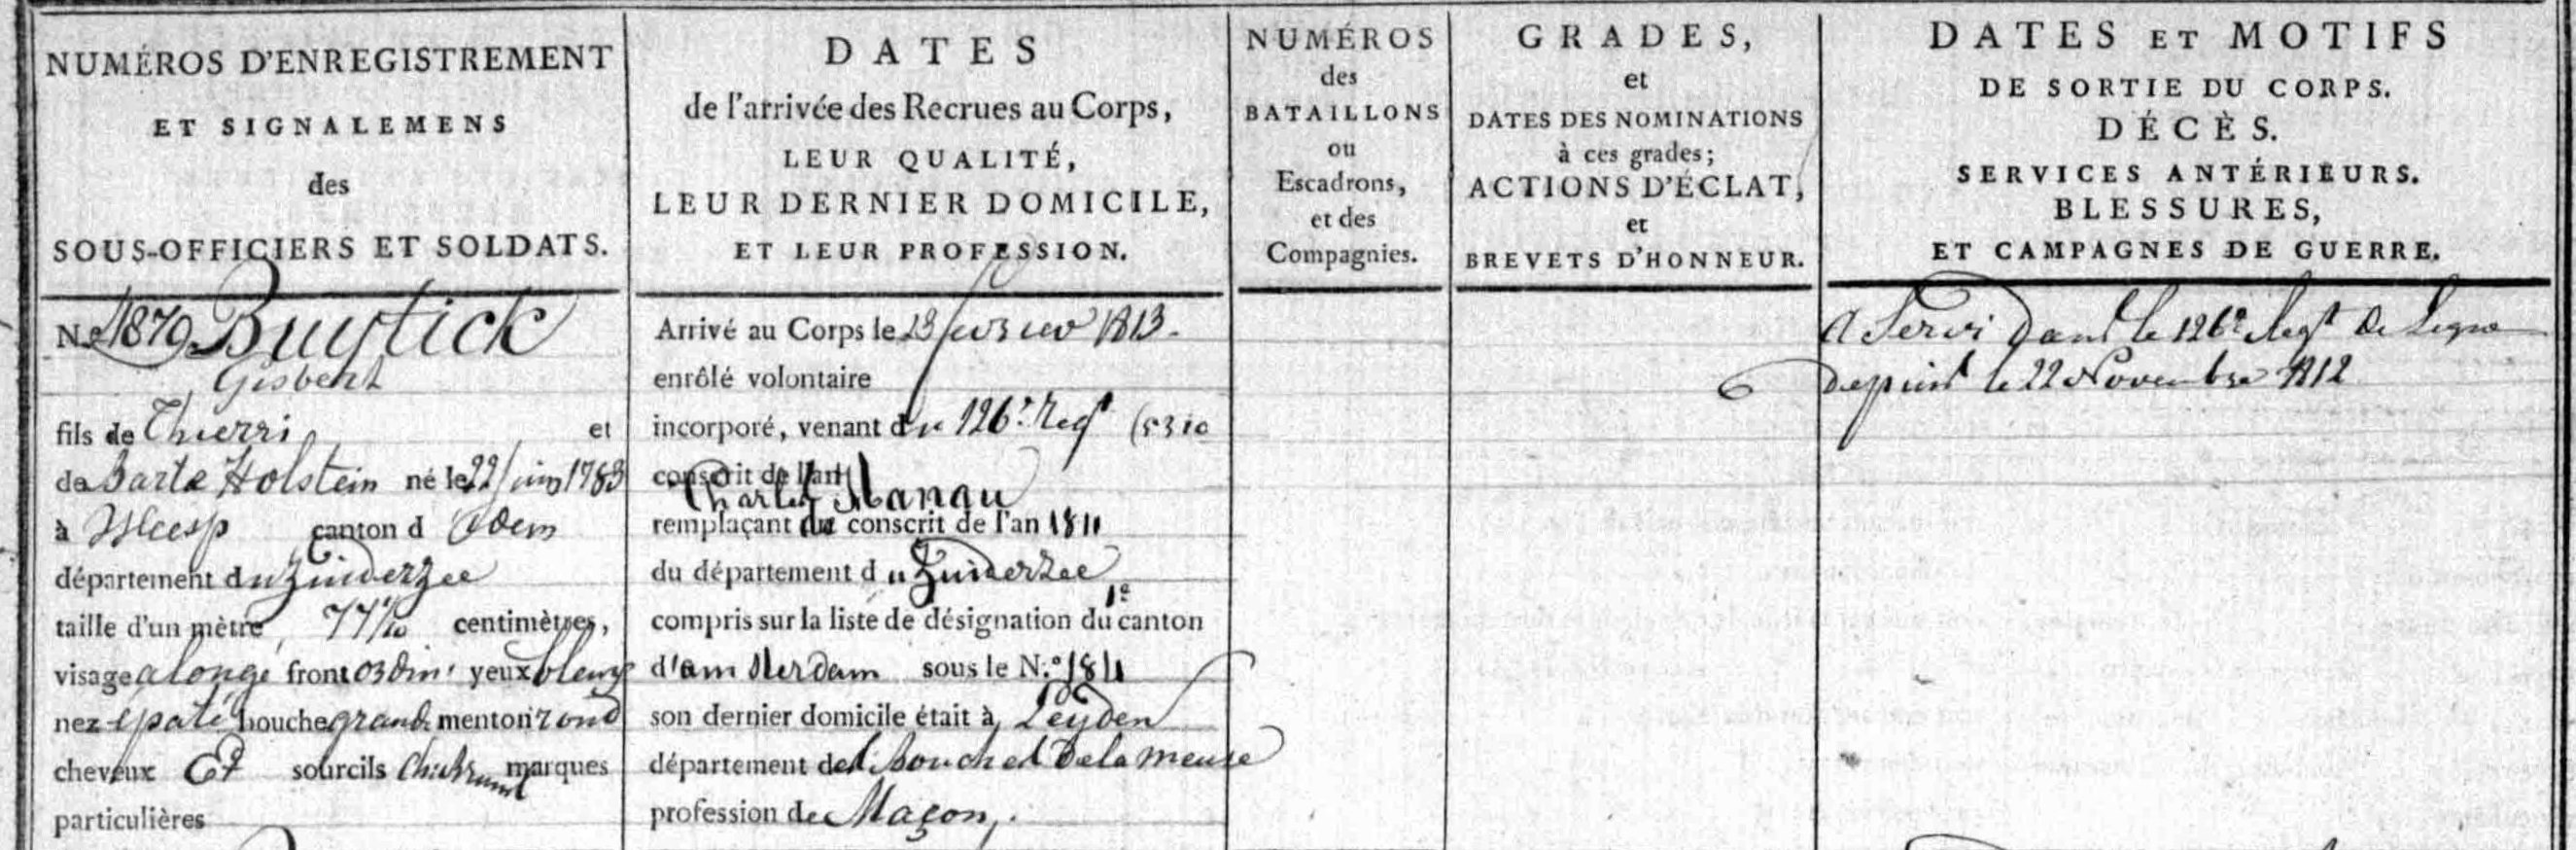 NUMÉROS D'ENREGISTREMENT
ET SIGNALEMENS
des
SOUS-OFFICIERS ET SOLDATS.
DATES
de l'arrivée des Recrues au Corps,
LEUR QUALITÉ,
LEUR DERNIER DOMICILE,
ET LEUR PROFESSION.
NUMÉROS
des
BATAILLONS
ou
Escadrons,
et des
Compagnies.
GRADES,
et
DATES DES NOMINATIONS
à ces grades;
ACTIONS D'ÉCLAT,
et
BREVETS D'HONNEUR.
DATES ET MOTIFS
DE SORTIE DU CORPS.
DÉCÈS.
SERVICES ANTÉRIEURS.
BLESSURES,
ET CAMPAGNES DE GUERRE.
N.o 1879 Buytick
Gisbert
fils de Thierri et
de Barte Holstein né le 22 juin 1783
à Weesp canton d Idem
département du Zuiderzee
taille d'un mètre, 77 centimètres,
visage alongé front ordin. yeux bleus
nez épaté bouche grande menton rond
cheveux Et sourcils marques
particulières
Arrivé au Corps le 13 fevrier 1813.
enrôlé volontaire
incorporé, venant du 126e Regt (5310
conscrit de l'an
Charles Manau
remplaçant du conscrit de l'an 1811
du département du Zuiderzee
compris sur la liste de désignation du 1e canton
d'amsterdam sous le N.o 1811
son dernier domicile était à Leyden
département des bouches de la meuse
profession de Maçon.
A Servi Dans le 126e Regt de Ligne
Depuis le 22 Novembre 1812